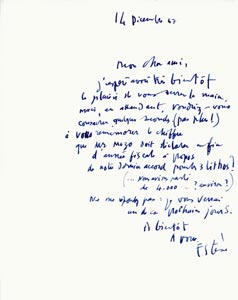 14 Décembre 62
Mon cher ami,
j'espère avoir très bientôt
le plaisir de vous serrer la main
mais, en attendant, voudriez-vous
consacrer quelques secondes (pas plus!)
à vous remémorer le chiffre
que doit déclarer en fin
d'année fiscale à propos
de notre dernier accord pour 3 lithos?
(... nous avions parlé
de 4.000 - ? environ?)
Ne me répondez pas : je vous verrai
un de ces prochains jours.
A bientôt
A vous,